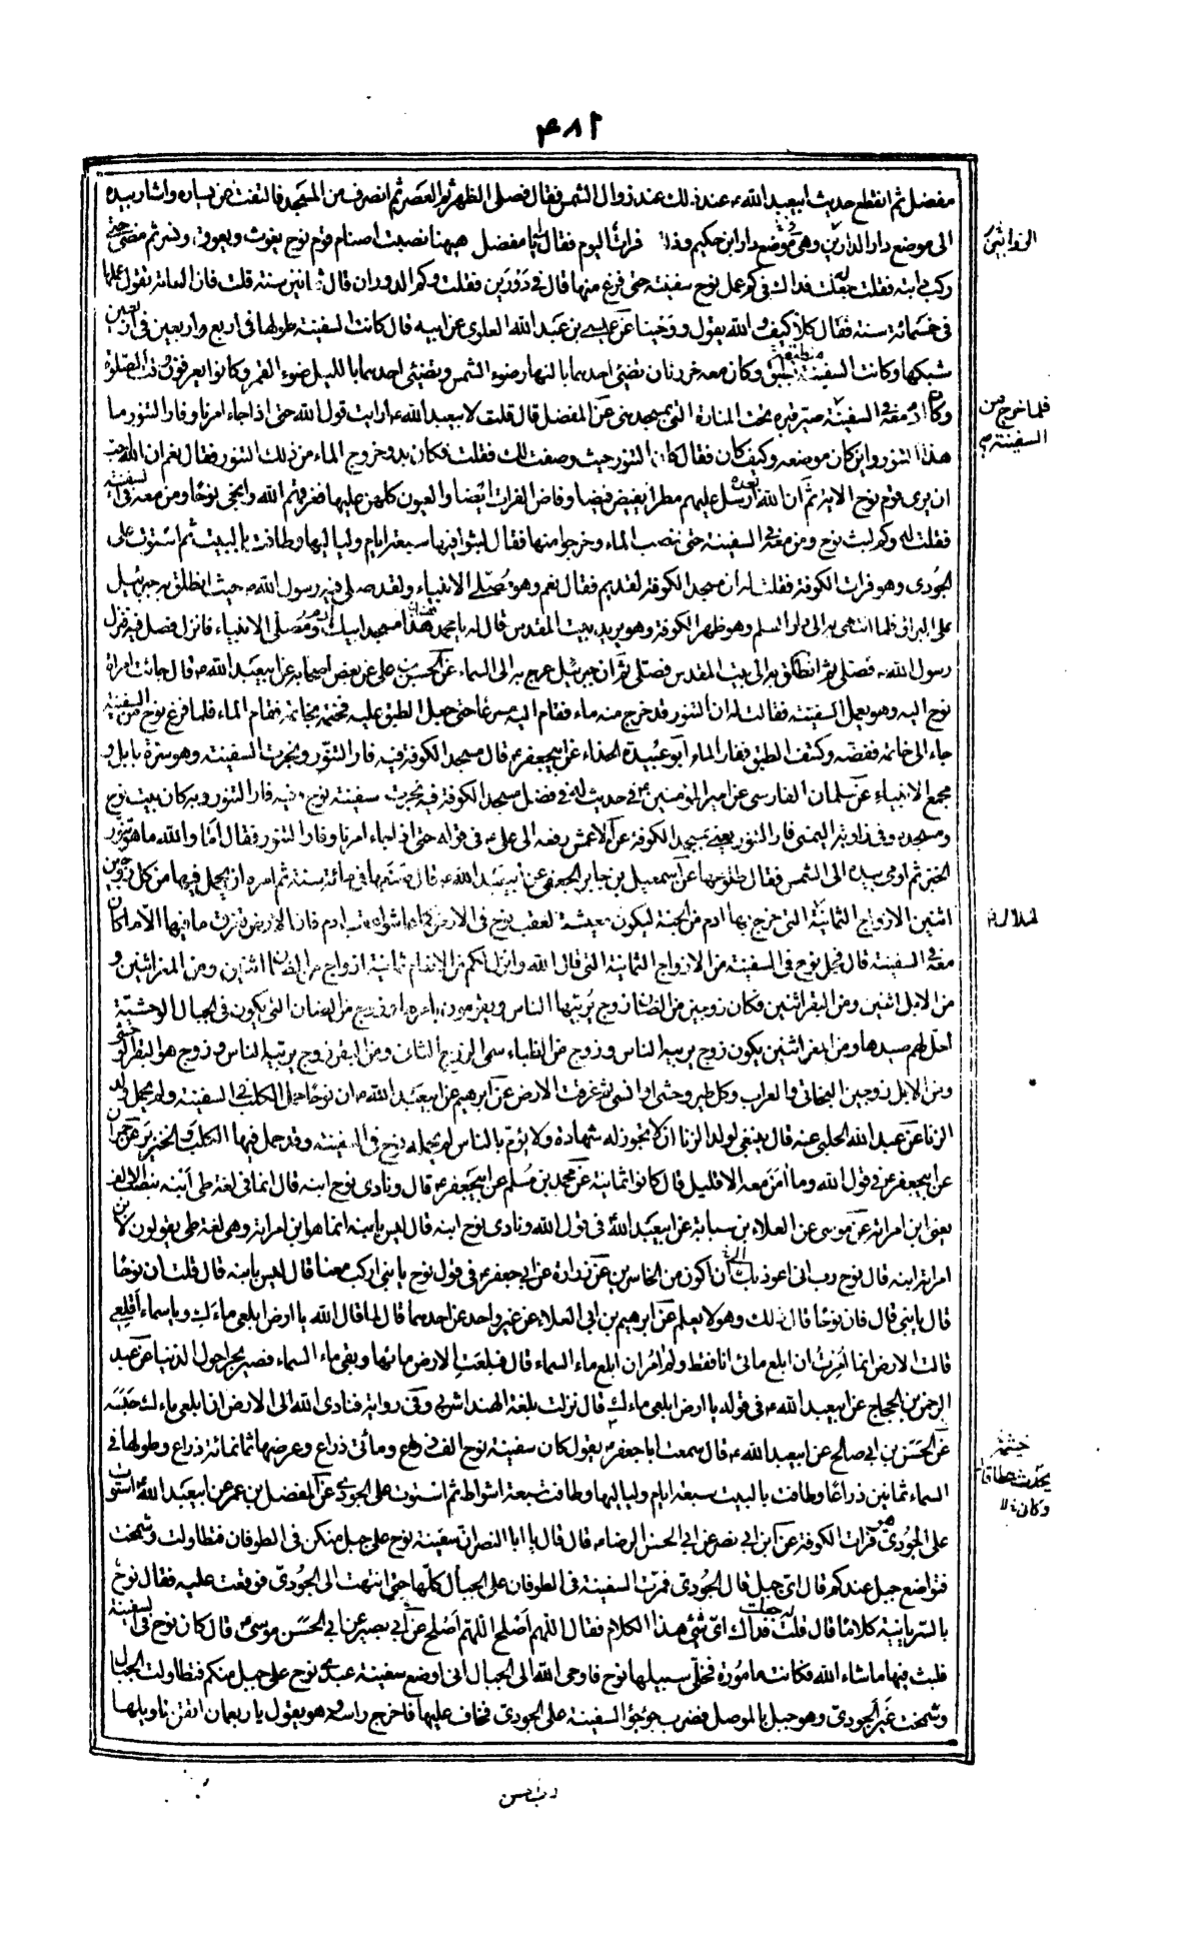 ۴۸۲
مفضل ثم انقطع حديث ابيعبد الله ع عند ذلك عند زوال الشمس فقال فصلى الظهر ثم العصر ثم انصرف من المسجد فالتفت عن يساره واشار بيده
الى موضع دار الدارين وهى موضع دار ابن حكيم وذا فرات اليوم فقال يا مفضل هيهنا نصبت اصنام قوم نوح يغوث ويعوق ونسر ثم مضى حتى
ركب دابته فقلت جعلت فداك فى كم عمل نوح سفينته حتى فرغ منها قال فى دورين فقلت وكم الدوران قال ثمانين سنة قلت فان العامة تقول عملها
فى خمسمائة سنة فقال كلا كيف والله يقول ووحينا عن عيسى بن عبد الله العلوى عن ابيه قال كانت السفينة طولها فى اربع واربعين فى اربعين
سمكها وكانت السفينة مطبقة بطبق وكان معه خرزتان تضيئ احديهما بالنهار ضوء الشمس وتضيئ احديهما بالليل ضوء القمر وكانوا يعرفون وقت الصلوة
وكان ادم معه فى السفينة صير قبره تحت المنارة التى بمسجد منى عن المفضل قال قلت لابيعبد الله ع ارايت قول الله حتى اذا جاء امرنا وفار التنور ما
هذا التنور واين كان موضعه وكيف كان فقال كان التنور حيث وصفت لك فقلت فكان بدو خروج الماء من ذلك التنور فقال نعم ان الله احب
ان يرى قوم نوح الاية ثم ان الله بعده ارسل عليهم مطرا يفيض فيضا وفاض الفرات ايضا والعيون كلهن عليها فغرقهم الله وانجى نوحا ومن معه فى السفينة
فقلت له وكم لبث نوح ومن معه فى السفينة حتى نضب الماء وخرجوا منها فقال لبثوا فيها سبعة ايام ولياليها وطافت بالبيت ثم استوت على
الجودى وهو فرات الكوفة فقلت له ان مسجد الكوفة لقديم فقال نعم وهو مصلى الانبياء ولقد صلى فيه رسول الله ص حيث انطلق به جبرئيل
على البراق فلما انتهى به الى دار السلم وهو ظهر الكوفة وهو يريد بيت المقدس قال له يا محمد هذا مسجد ابيك ادم ومصلى الانبياء فانزل فصل فيه فنزل
رسول الله ص فصلى ثم انطلق به الى بيت المقدس فصلى ثم ان جبرئيل عرج به الى السماء عن الحسن بن على عن بعض اصحابه عن ابيعبد الله ع قال جائت امراة
نوح اليه وهو يعمل السفينة فقالت له ان التنور قد خرج منه ماء فقام اليه مسرعا حتى جعل الطبق عليه فختمه بخاتمه فقام الماء فلما فرغ نوح من السفينة
جاء الى خاتمه ففضه وكشف الطبق ففار الماء ابو عبيدة الحذاء عن ابيجعفر ع قال مسجد الكوفة فيه فار التنور ونجرت السفينة وهو سرة بابل و
مجمع الانبياء عن سلمان الفارسى عن امير المؤمنين ع فى حديث له فى فضل مسجد الكوفة فيه نجرت سفينة نوح وفيه فار التنور وبه كان بيت نوح
ومسجده وفى زاويته اليمنى فار التنور يعنى بمسجد الكوفة عن الاعمش رفعه الى على ع فى قوله حتى اذا جاء امرنا وفار التنور فقال اما والله ما هو تنور
الخبز ثم اومى بيده الى الشمس فقال طلوعها عن اسمعيل بن جابر الجعفى عن ابيعبد الله ع قال صنعها فى مائة سنة ثم امره ان يحمل فيها من كل زوجين
اثنين الازواج الثمانية التى خرج بها ادم من الجنة ليكون معيشة لعقب نوح فى الارض كما عاش عقب ادم فان الارض تغرق ما فيها الا ما كان
معه فى السفينة قال فحمل نوح فى السفينة من الازواج الثمانية التى قال الله وانزل لكم من الانعام ثمانية ازواج من الضان اثنين ومن المعز اثنين و
من الابل اثنين ومن البقر اثنين فكان زوجين من الضان زوج يربيها الناس ويقومون بامرها وزوج من الضان التى يكون فى الجبال الوحشية
احل لهم صيدها ومن المعز اثنين يكون زوج يربيه الناس وزوج من الظباء سمى الزوج الثانى ومن البقر زوج يربيه الناس وزوج هو البقر الوحشى
ومن الابل زوجين البخاتى والعراب وكل طير وحشى او انسى ثم غرقت الارض عن ابرهيم عن ابيعبد الله ع ان نوحا حمل الكلب فى السفينة ولم يحمل ولد
الزنا عن عبيد الله الحلبى عنه قال ينبغى لولد الزنا ان لا تجوز له شهادة ولا يؤم بالناس لم يحمله نوح فى السفينة وقد حمل فيها الكلب والخنزير عن حمران
عن ابيجعفر ع فى قول الله وما امن معه الا قليل قال كانوا ثمانية عن محمد بن مسلم عن ابيجعفر ع قال ونادى نوح ابنه قال انما فى لغة طى ابنه بنصب الالف
يعنى ابن امراته عن موسى عن العلاء بن سيابة عن ابيعبد الله فى قول الله ونادى نوح ابنه قال ليس بابنه انما هو ابن امراته وهى لغة طى يقولون لابن
امراته ابنه قال نوح رب انى اعوذ بك ان اكون من الخاسرين عن زرارة عن ابيجعفر ع فى قول نوح يا بنى اركب معنا قال ليس بابنه قال قلت ان نوحا
قال يا بنى قال فان نوحا قال ذلك وهو لا يعلم عن ابرهيم بن ابى العلاء عن غير واحد عن احدهما قال لما قال الله يا ارض ابلعى ماءك ويا سماء اقلعى
قالت الارض انما امرت ان ابلع مائى انا فقط ولم اومر ان ابلع ماء السماء قال فبلعت الارض مائها وبقى ماء السماء فصير بحرا حول الدنيا عن عبد
الرحمن بن الحجاج عن ابيعبد الله ع فى قوله يا ارض ابلعى ماءك قال نزلت بلغة الهند اشربى وفى رواية فنادى الله الى الارض ان ابلعى ماءك حبسه
عن الحسن بن ابى صالح عن ابيعبد الله ع قال سمعت ابا جعفر يقول كان سفينة نوح الف ذراع ومائتى ذراع وعرضها ثمانمائة ذراع وطولها فى
السماء ثمانين ذراعا وطافت بالبيت سبعة ايام ولياليها وطافت سبعة اشواط ثم استوت على الجودى عن المفضل بن عمر عن ابيعبد الله ع استوت
على الجودى هو فرات الكوفة عن ابن ابى نصر عن ابى الحسن الرضا ع قال قال يا ابا النصر ان سفينة نوح على جبل منكن فى الطوفان فتطاولت وشمخت
فتواضع جبل عندكم قال اى جبل قال الجودى فمرت السفينة فى الطوفان على الجبال كلها حتى انتهت الى الجودى فوقعت عليه فقال نوح
بالسريانية كلاما قال قلت له جعلت فداك اى شئ هذا الكلام فقال اللهم اصلح اللهم اصلح عن ابى بصير عن ابى الحسن موسى ع قال كان نوح فى السفينة
فلبث فيها ما شاء الله فكانت مامورة فخلى سبيلها نوح فاوحى الله الى الجبال انى اوضع سفينة عبدى نوح على جبل منكم فتطاولت الجبال
وشمخت غير الجودى وهو جبل بالموصل فضرب جؤجؤ السفينة على الجودى فخاف عليها فاخرج راسه وهو يقول يا ربعمان اتقن تاويلها
فلما خرج من
السفينة
خيثمة
وكان
رب احسن